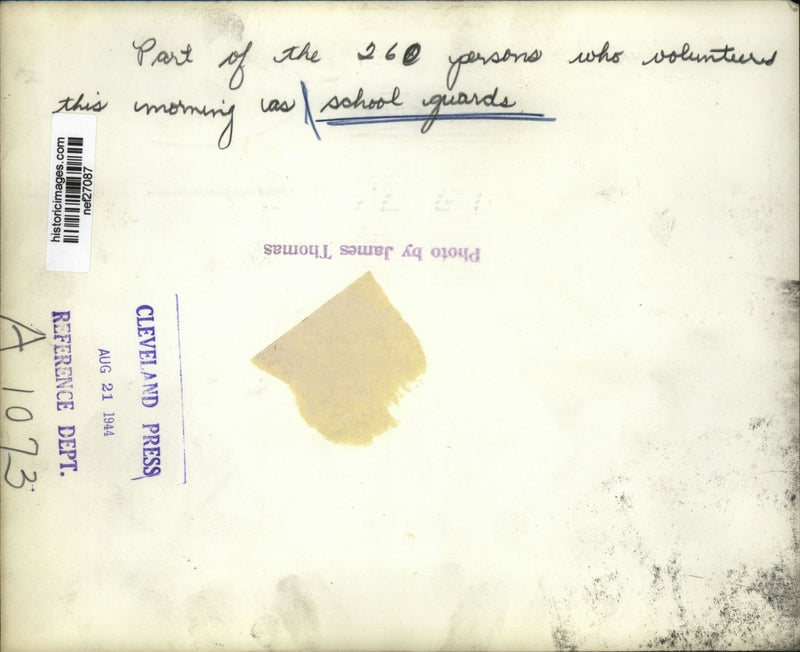 Part of the 260 persons who volunteered
this morning as school guards
historicimages.com
nef27087
Photo by James Thomas
CLEVELAND PRESS
AUG 21 1944
REFERENCE DEPT.
A 1073